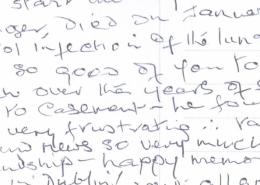 ger, died on January
infection of the lung
so good of you to
over the years of
to Casement – he fou
very frustrating :
news so very much
ndship – happy memo
in Dublin